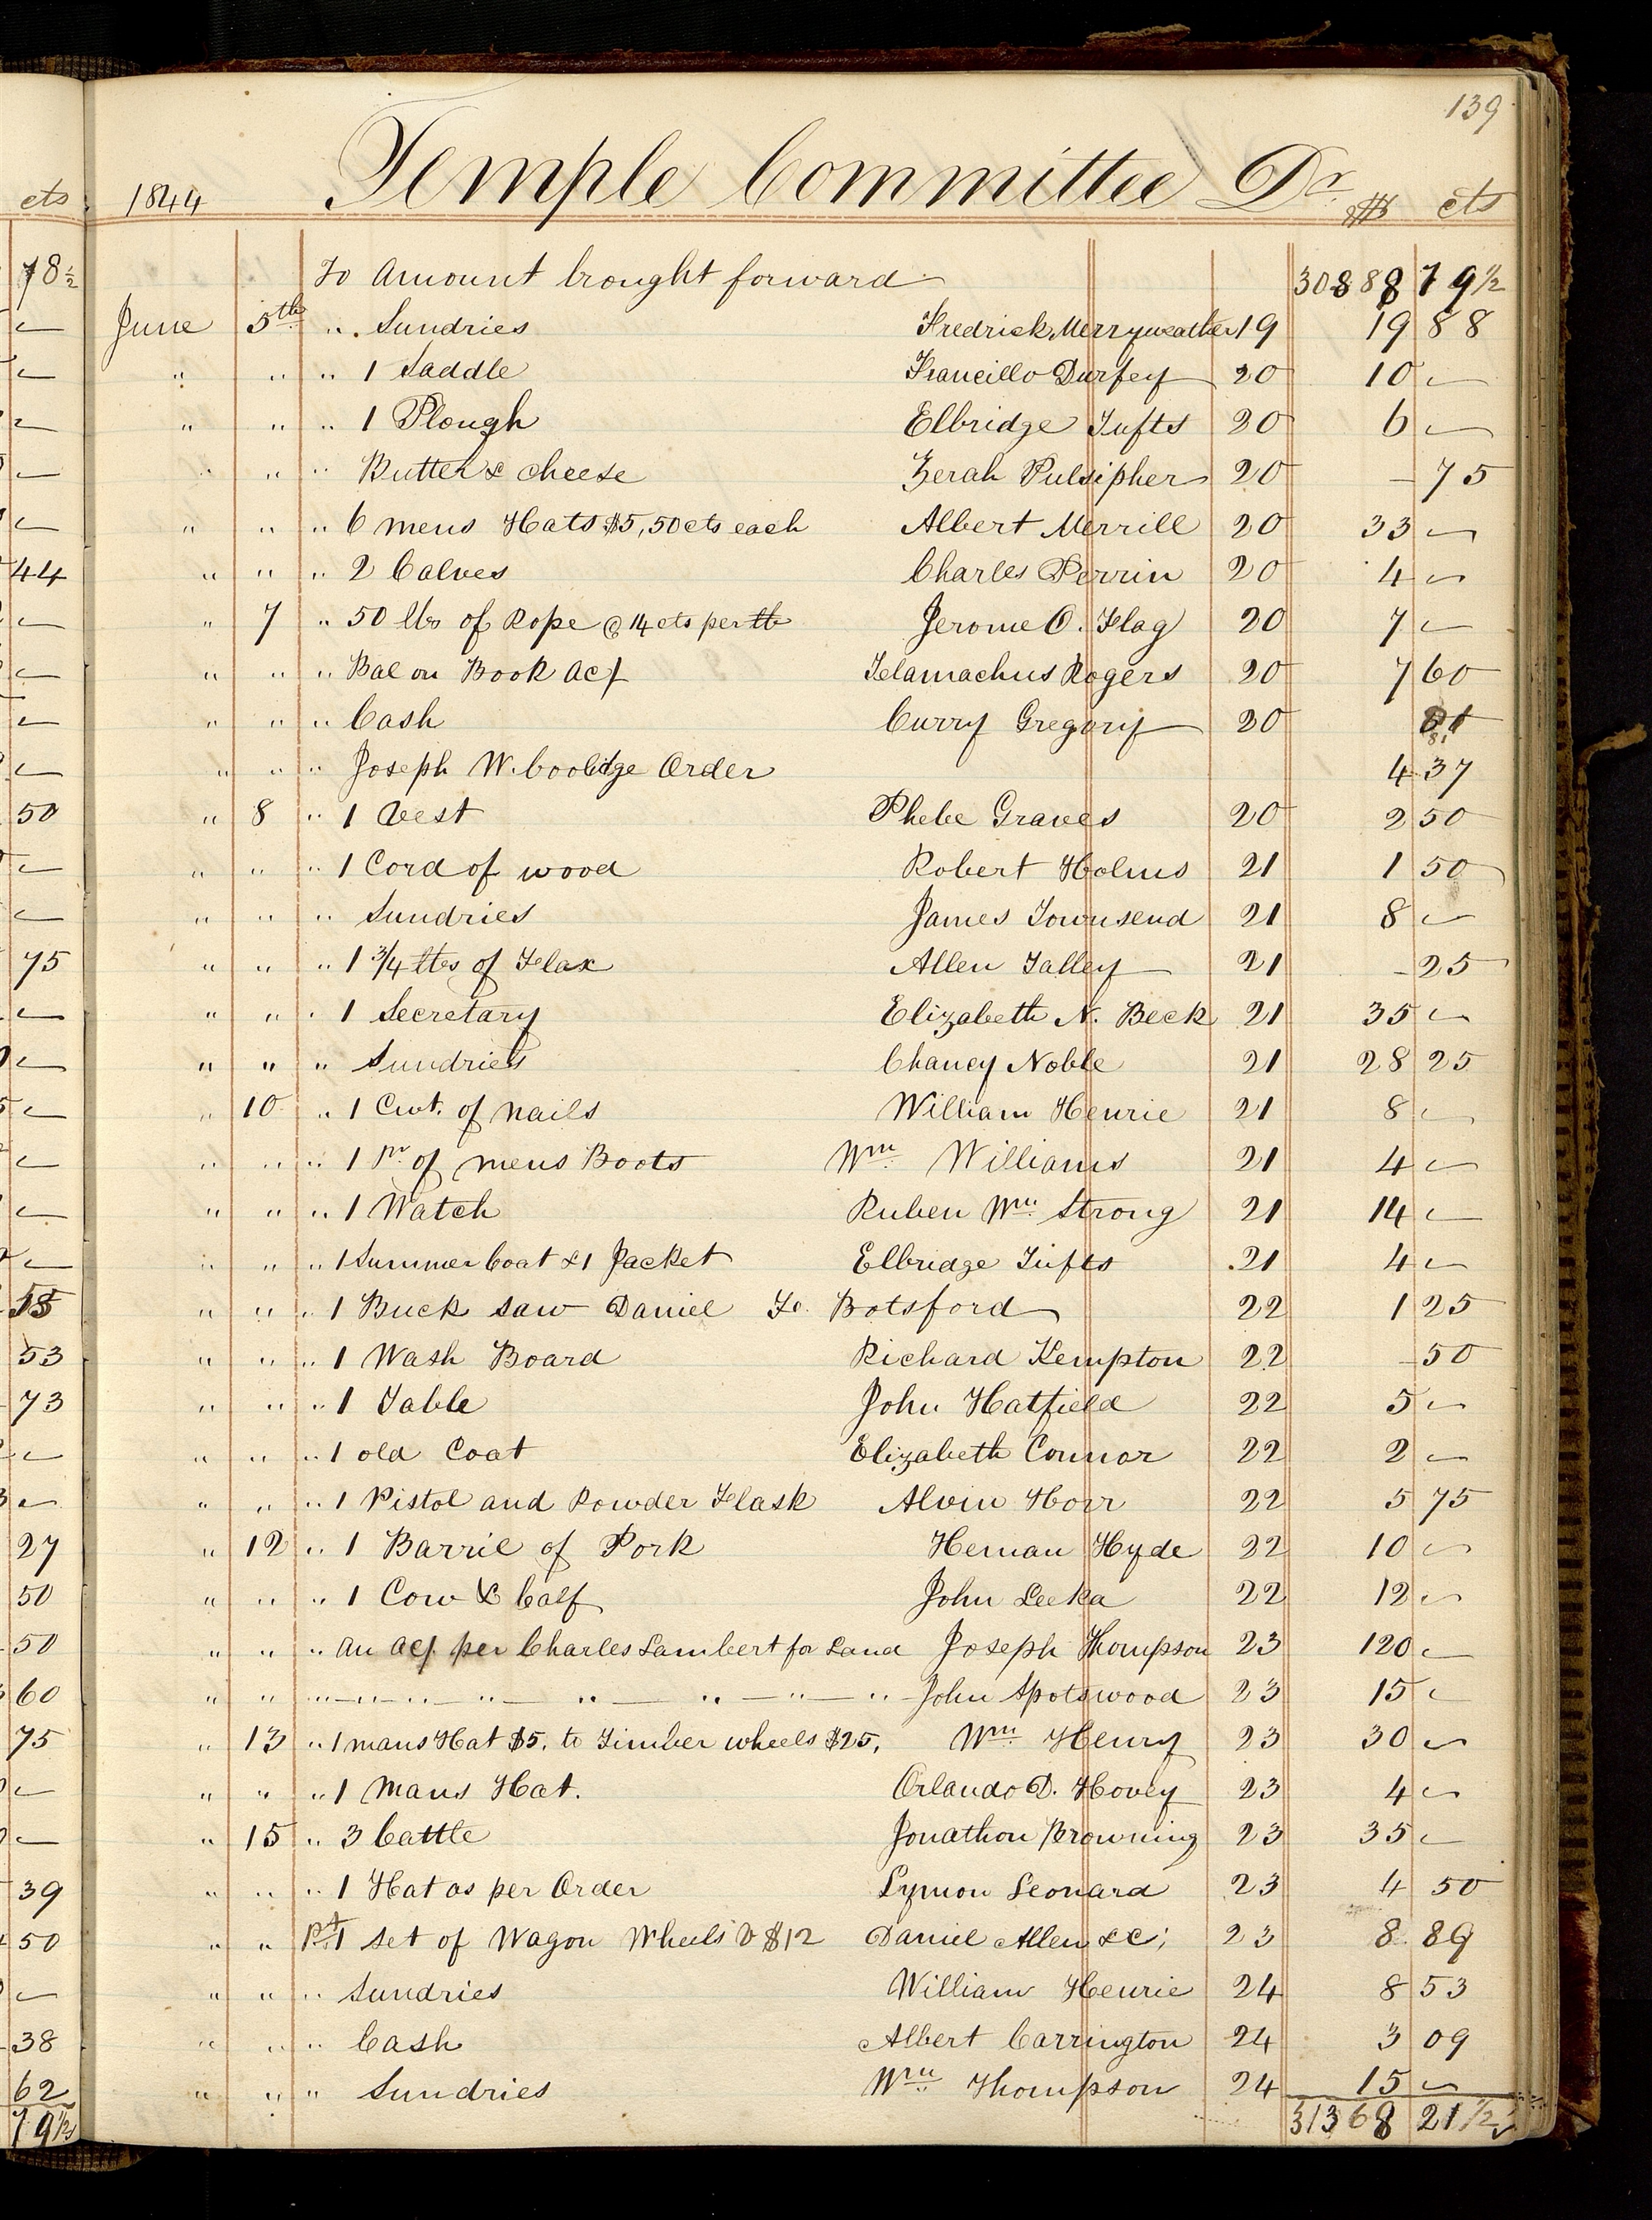 139
cts 1844 Temple Committee Dr. $ cts
78½ To Amount brought forward 30888 79½
June 5th " Sundries Fredrick Merryweather 19 19 88
" " " 1 Saddle Francillo Durfey 20 10 —
" " " 1 Plough Elbridge Tufts 20 6 —
" " " Butter & cheese Zerah Pulsipher 20 — 75
" " " 6 mens Hats $5,50cts each Albert Merrill 20 33 —
44 " " " 2 Calves Charles Perrin 20 4 —
" 7 " 50 lbs of Rope @ 14 cts per lb Jerome O. Flag 20 7 —
" " " Bal on Book Act Telamachus Rogers 20 7 60
" " " Cash Curry Gregory 20 81
" " " Joseph W. Coolidge Order 4 37
50 " 8 " 1 Vest Phebe Graves 20 2 50
" " " 1 Cord of wood Robert Holms 21 1 50
" " " Sundries James Townsend 21 8 —
75 " " " 1 3/4 lbs of Flax Allen Talley 21 — 25
" " " 1 Secretary Elizabeth N. Beck 21 35 —
" " " Sundries Chancy Noble 21 28 25
" 10 " 1 Cwt. of nails William Henrie 21 8 —
" " " 1 Pr of mens Boots Wm Williams 21 4 —
" " " 1 Watch Ruben Wm Strong 21 14 —
" " " 1 Summer Coat & 1 Jacket Elbridge Tufts 21 4 —
" " " 1 Buck Saw Daniel Botsford 22 1 25
53 " " " 1 Wash Board Richard Kempton 22 — 50
73 " " " 1 Table John Hatfield 22 5 —
" " " 1 old Coat Elizabeth Connor 22 2 —
" " " 1 Pistol and Powder Flask Alvin Horr 22 5 75
27 " 12 " 1 Barril of Pork Heman Hyde 22 10 —
50 " " " 1 Cow & Calf John Leeka 22 12 —
50 " " " an Act per Charles Lambert for Land Joseph Thompson 23 120 —
60 " " " — " — " — " — " — " — " — " John Spotswood 23 15 —
75 " 13 " 1 mans Hat $5. to Timber wheels $25, Wm Henry 23 30 —
" " " 1 Mans Hat. Orlando D. Hovey 23 4 —
" 15 " 3 Cattle Jonathon Browning 23 35 —
39 " " " 1 Hat as per Order Lymon Leonard 23 4 50
50 " " Pt 1 set of Wagon Wheels $12 Daniel Allen &c; 23 8 89
" " " Sundries William Henrie 24 8 53
38 " " " Cash Albert Carrington 24 3 09
62 " " " Sundries Wm Thompson 24 15 —
79½ 31368 21½